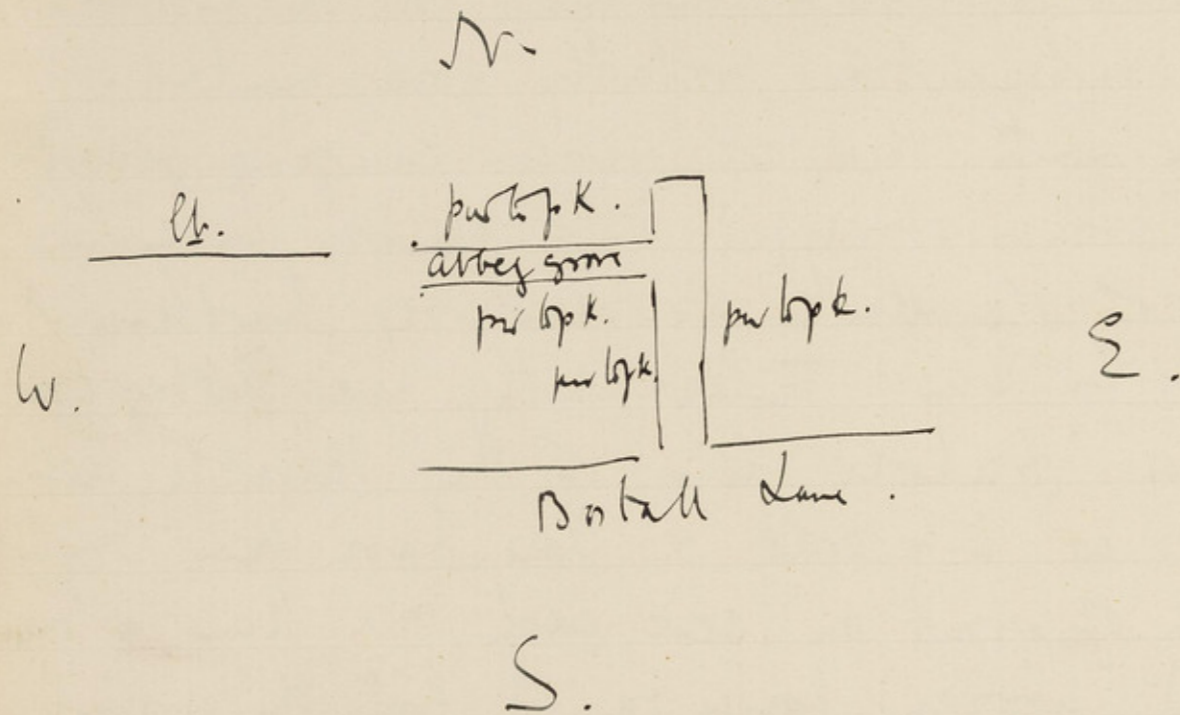 N.
Ch.
pur to pk.
abbey grove
pur to pk.
pur to pk.
pur to pk.
W.
E.
Bostall Lane.
S.